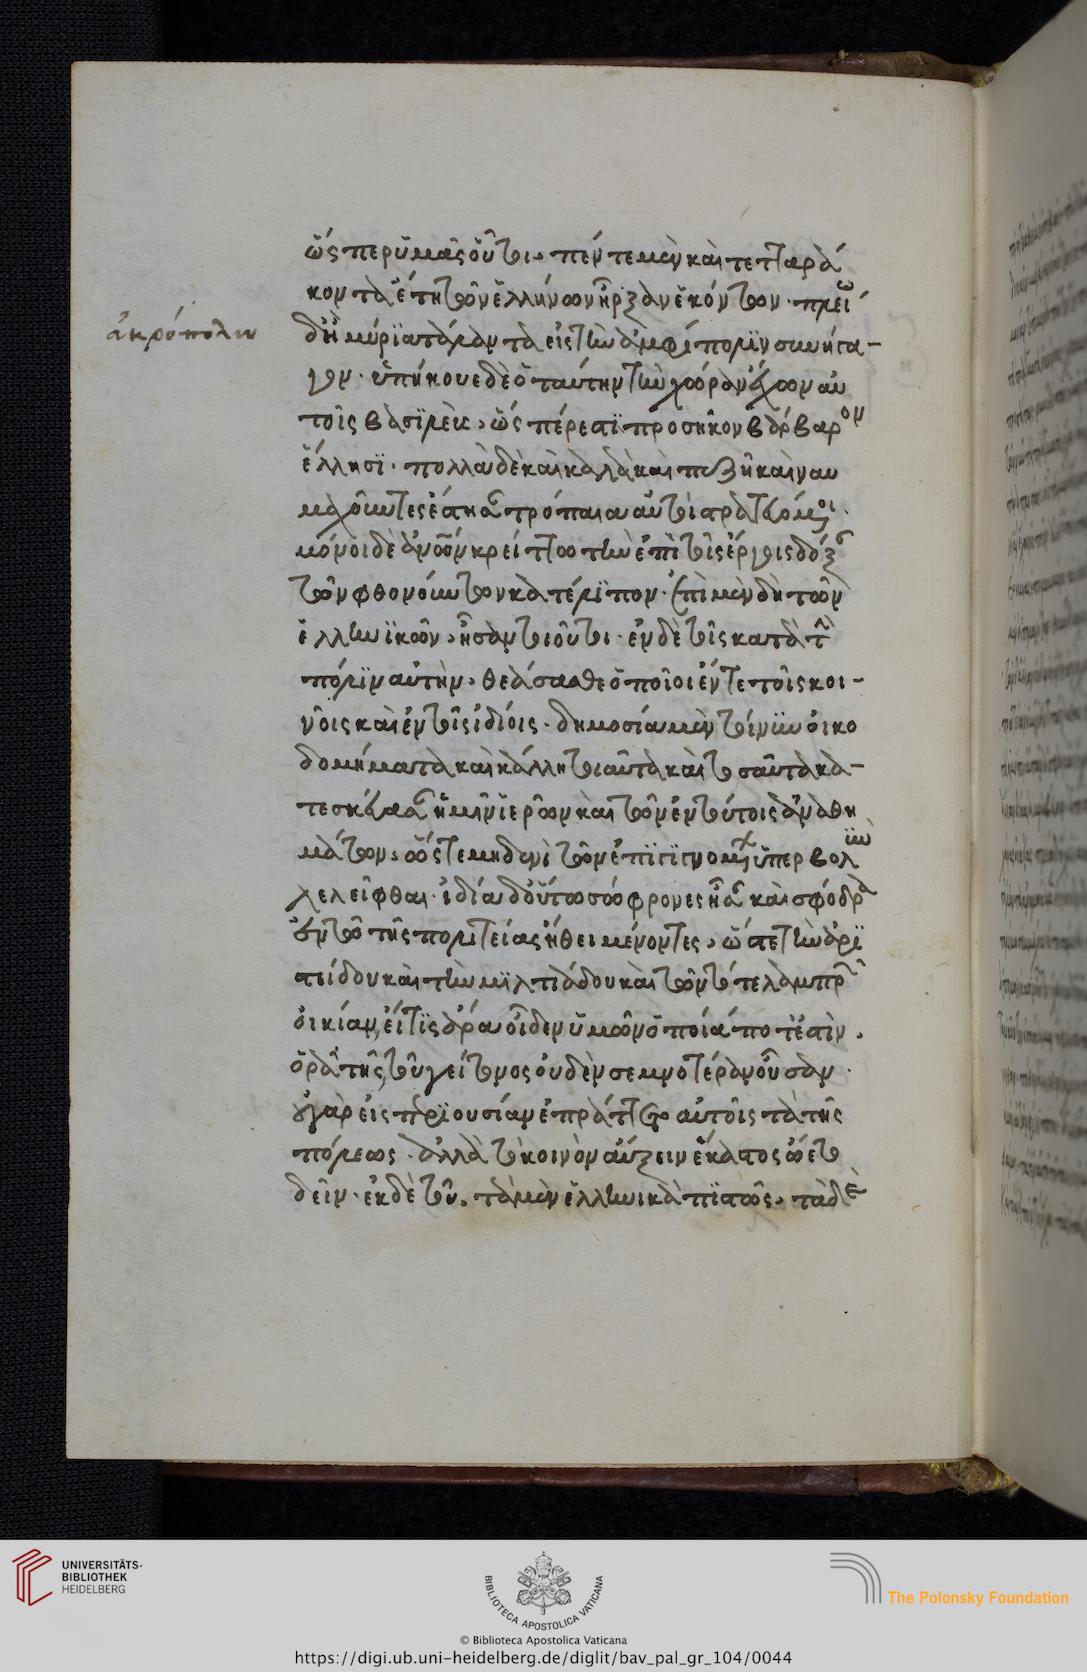 ὥσπερ ὑμᾶς οὗτοι· πέντε μὲν καὶ τετταρά
κοντα ἔτη τῶν ἑλλήνων ἦρξαν ἑκόντων· πλείω
δ' ἢ μύρια τάλαντα εἰς τὴν ἀκρόπολιν συνήγα-
γον· ὑπήκουε δὲ ὁ ταύτην τὴν χώραν ἔχων αὐ
τοῖς βασιλεὺς, ὥσπερ ἐστὶ προσῆκον βάρβαρον
ἕλλησι· πολλὰ δὲ καὶ καλὰ καὶ πεζῇ καὶ ναυ
μαχοῦντες ἔστησαν τρόπαια αὐτοὶ στρατευόμενοι·
μόνοι δὲ ἀνθρώπων κρείττω τὴν ἐπὶ τοῖς ἔργοις δόξαν
τῶν φθονούντων κατέλιπον· ἐπὶ μὲν δὴ τῶν
ἑλληνικῶν, ἦσαν τοιοῦτοι· ἐν δὲ τοῖς κατὰ τὴν
πόλιν αὐτὴν, θεάσασθε ὁποῖοι ἔν τε τοῖς κοι-
νοῖς καὶ ἐν τοῖς ἰδίοις· δημοσίᾳ μὲν τοίνυν οἰκο
δομήματα καὶ κάλλη τοιαῦτα καὶ τοσαῦτα κα-
τεσκεύασαν ἡμῖν ἱερῶν καὶ τῶν ἐν τούτοις ἀναθη
μάτων, ὥστε μηδενὶ τῶν ἐπιγιγνομένων ὑπερβολὴν
λελεῖφθαι· ἰδίᾳ δ' οὕτω σώφρονες ἦσαν καὶ σφόδρα
ἐν τῷ τῆς πολιτείας ἤθει μένοντες, ὥστε τὴν ἀρι
στείδου καὶ τὴν μιλτιάδου καὶ τῶν τότε λαμπρῶν
οἰκίαν, εἴ τις ἄρα οἶδεν ὑμῶν ὁποία ποτ' ἐστὶν,
ὁρᾷ τῆς τοῦ γείτονος οὐδὲν σεμνοτέραν οὖσαν·
οὐ γὰρ εἰς περιουσίαν ἐπράττετο αὐτοῖς τὰ τῆς
πόλεως· ἀλλὰ τὸ κοινὸν αὔξειν ἕκαστος ᾤετο
δεῖν· ἐκ δὲ τοῦ, τὰ μὲν ἑλληνικὰ πιστῶς, τὰ δὲ
ἀκρόπολιν
UNIVERSITÄTS-
BIBLIOTHEK
HEIDELBERG
BIBLIOTECA APOSTOLICA VATICANA
The Polonsky Foundation
© Biblioteca Apostolica Vaticana
https://digi.ub.uni-heidelberg.de/diglit/bav_pal_gr_104/0044